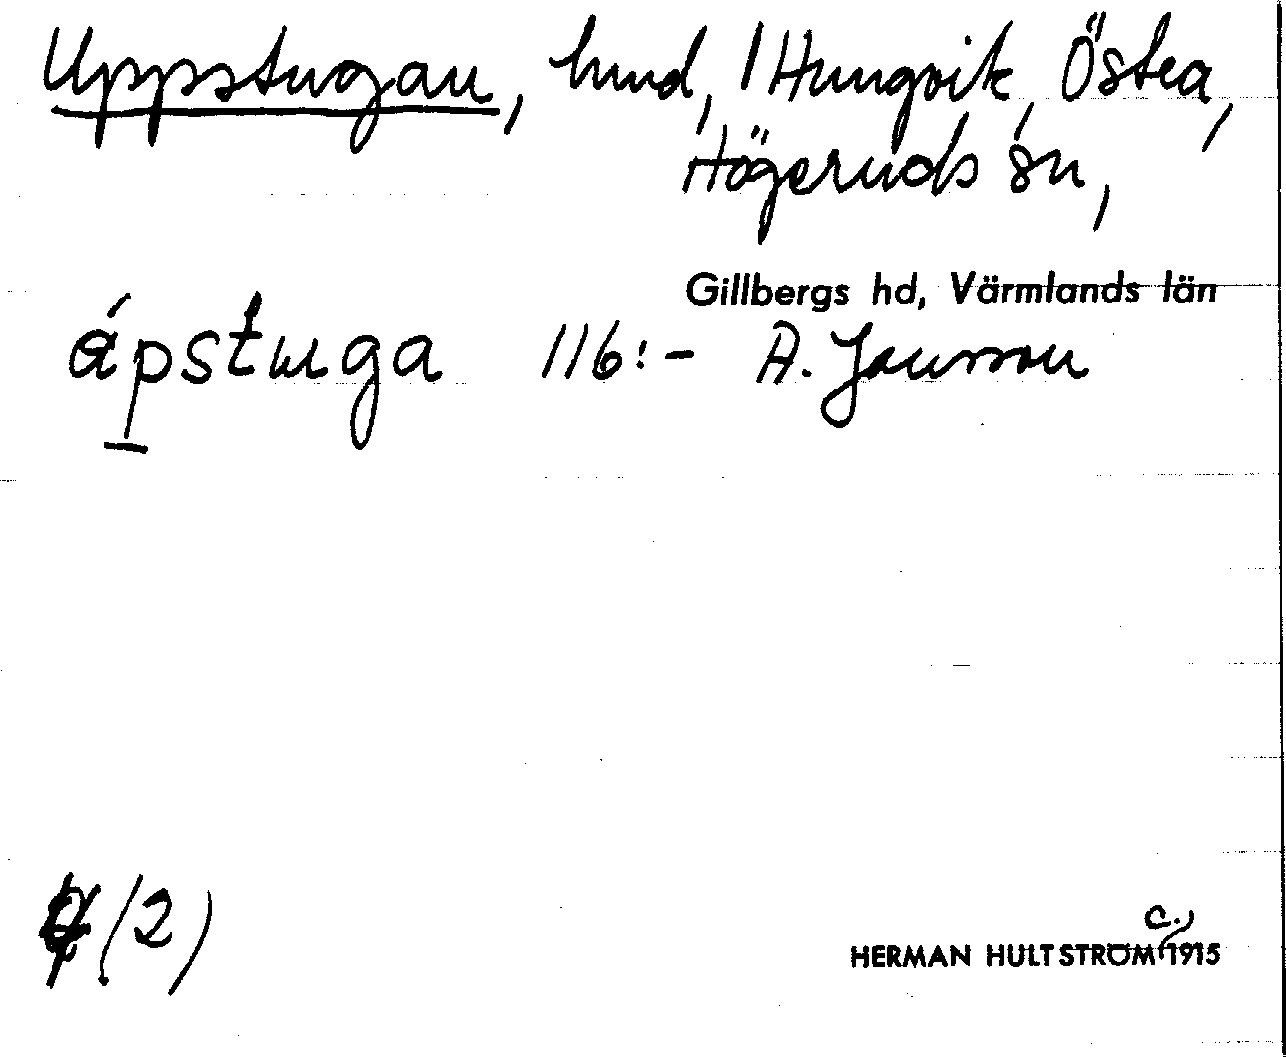 Uppstugan, hmd, / Hungvik, Östra,
Högeruds sn,
Gillbergs hd, Värmlands län
ápstuga 116:- A. Jansson
(2)
c.
HERMAN HULTSTRÖM 1915